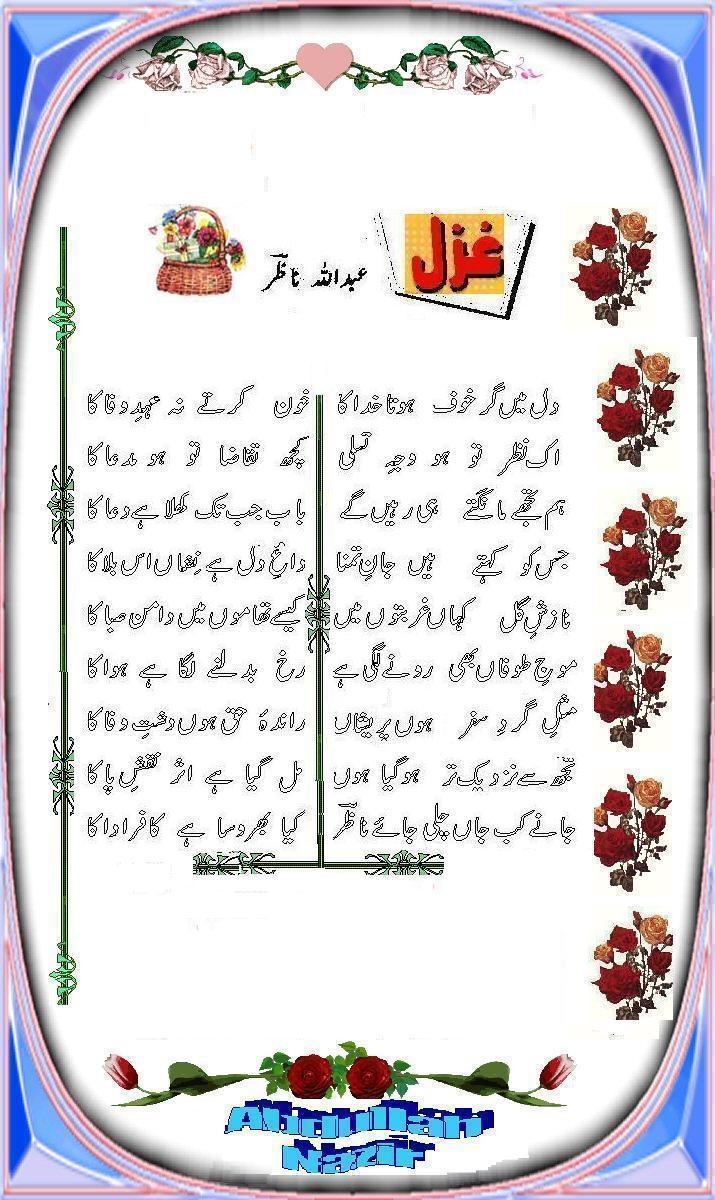 غزل
عبداللہ ناظر
دل میں گر خوف ہوتا خدا کا خون کرتے نہ عہدِ وفا کا
اک نظر تو ہو وجہِ تسلی کچھ تقاضا تو ہو مدعا کا
ہم تجھے مانگتے ہی رہیں گے باب جب تک کھلا ہے دعا کا
جس کو کہتے ہیں جانِ تمنا داغِ دل ہے نشاں اس بلا کا
نازشِ گل کہاں غربتوں میں کیسے تھاموں میں دامن صبا کا
موجِ طوفاں بھی رونے لگی ہے رخ بدلنے لگا ہے ہوا کا
مثلِ گردِ سفر ہوں پریشاں راندۂ حق ہوں دشتِ وفا کا
تجھ سے نزدیک تر ہوگیا ہوں مل گیا ہے اثر نقشِ پا کا
جانے کب جاں چلی جائے ناظر کیا بھروسا ہے کافر ادا کا
Abdullah
Nazir